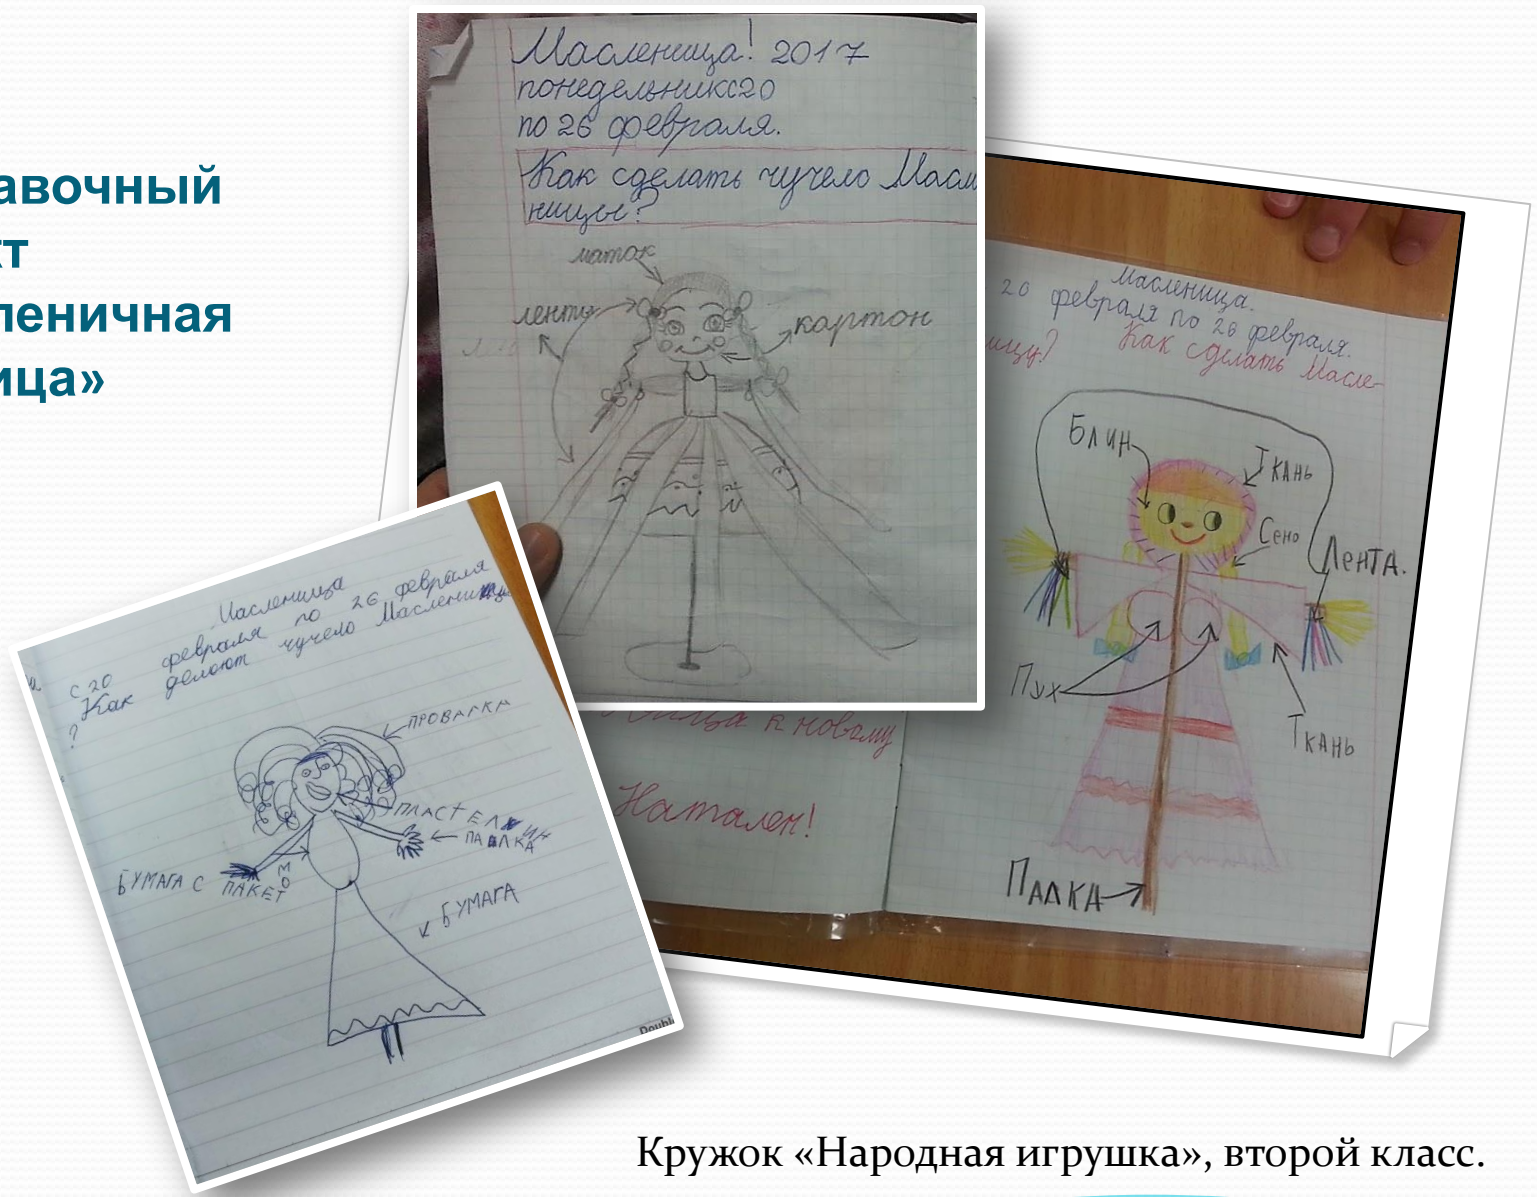 авочный
кт
леничная
ица»
Масленица! 2017
понедельникс20
по 26 февраля.
Как сделать чучело Масл
ницы?
маток
ленты
картон
Масленица.
20 февраля по 26 февраля.
ицу? Как сделать Масле-
Блин
Ткань
Сено
Лента.
Пух
Ткань
Палка
к новому
Натален!
Масленица
с 20 февраля по 26 февраля
Как делают чучело Масленицы
?
ПРОВАЛКА
ПЛАСТЕЛИН
ПАЛКА
БУМАГА С
ПАКЕТ
БУМАГА
Doubl
Кружок «Народная игрушка», второй класс.